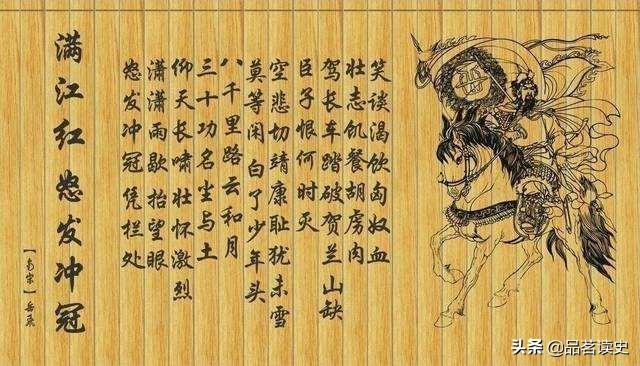 满江红 怒发冲冠
【南宋】岳飞
怒发冲冠凭栏处
潇潇雨歇抬望眼
仰天长啸壮怀激烈
三十功名尘与土
八千里路云和月
莫等闲白了少年头
空悲切靖康耻犹未雪
臣子恨何时灭
驾长车踏破贺兰山缺
壮志饥餐胡虏肉
笑谈渴饮匈奴血
头条 @品茗读史